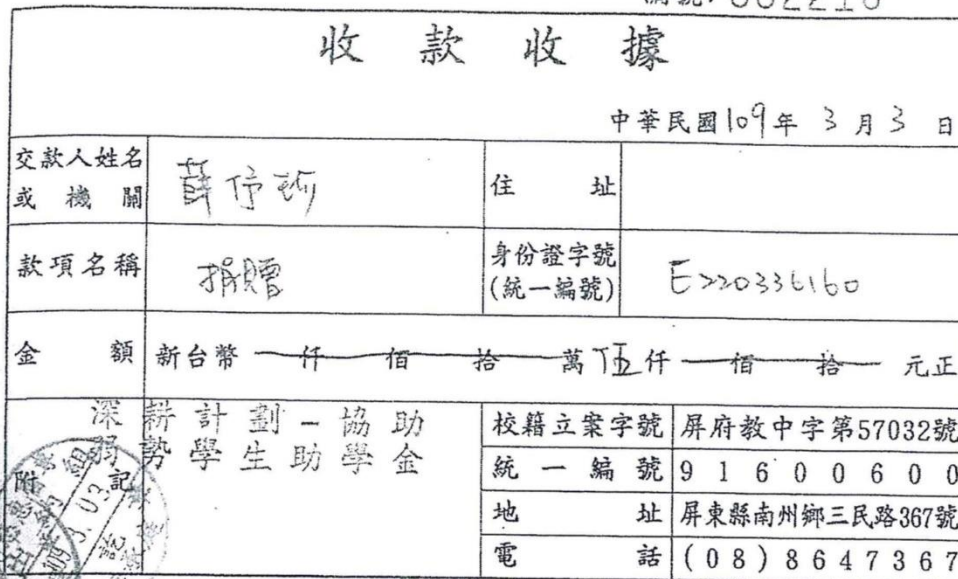 收款收據
中華民國109年3月3日
交款人姓名或機關 薛伃珎 住址
款項名稱 捐贈 身份證字號(統一編號) E220336160
金額 新台幣 仟 佰 拾 萬伍仟 佰 拾 元正
深耕計劃-協助
弱勢學生助學金
附記
校籍立案字號 屏府教中字第57032號
統一編號 91600600
地址 屏東縣南州鄉三民路367號
電話 (08)8647367